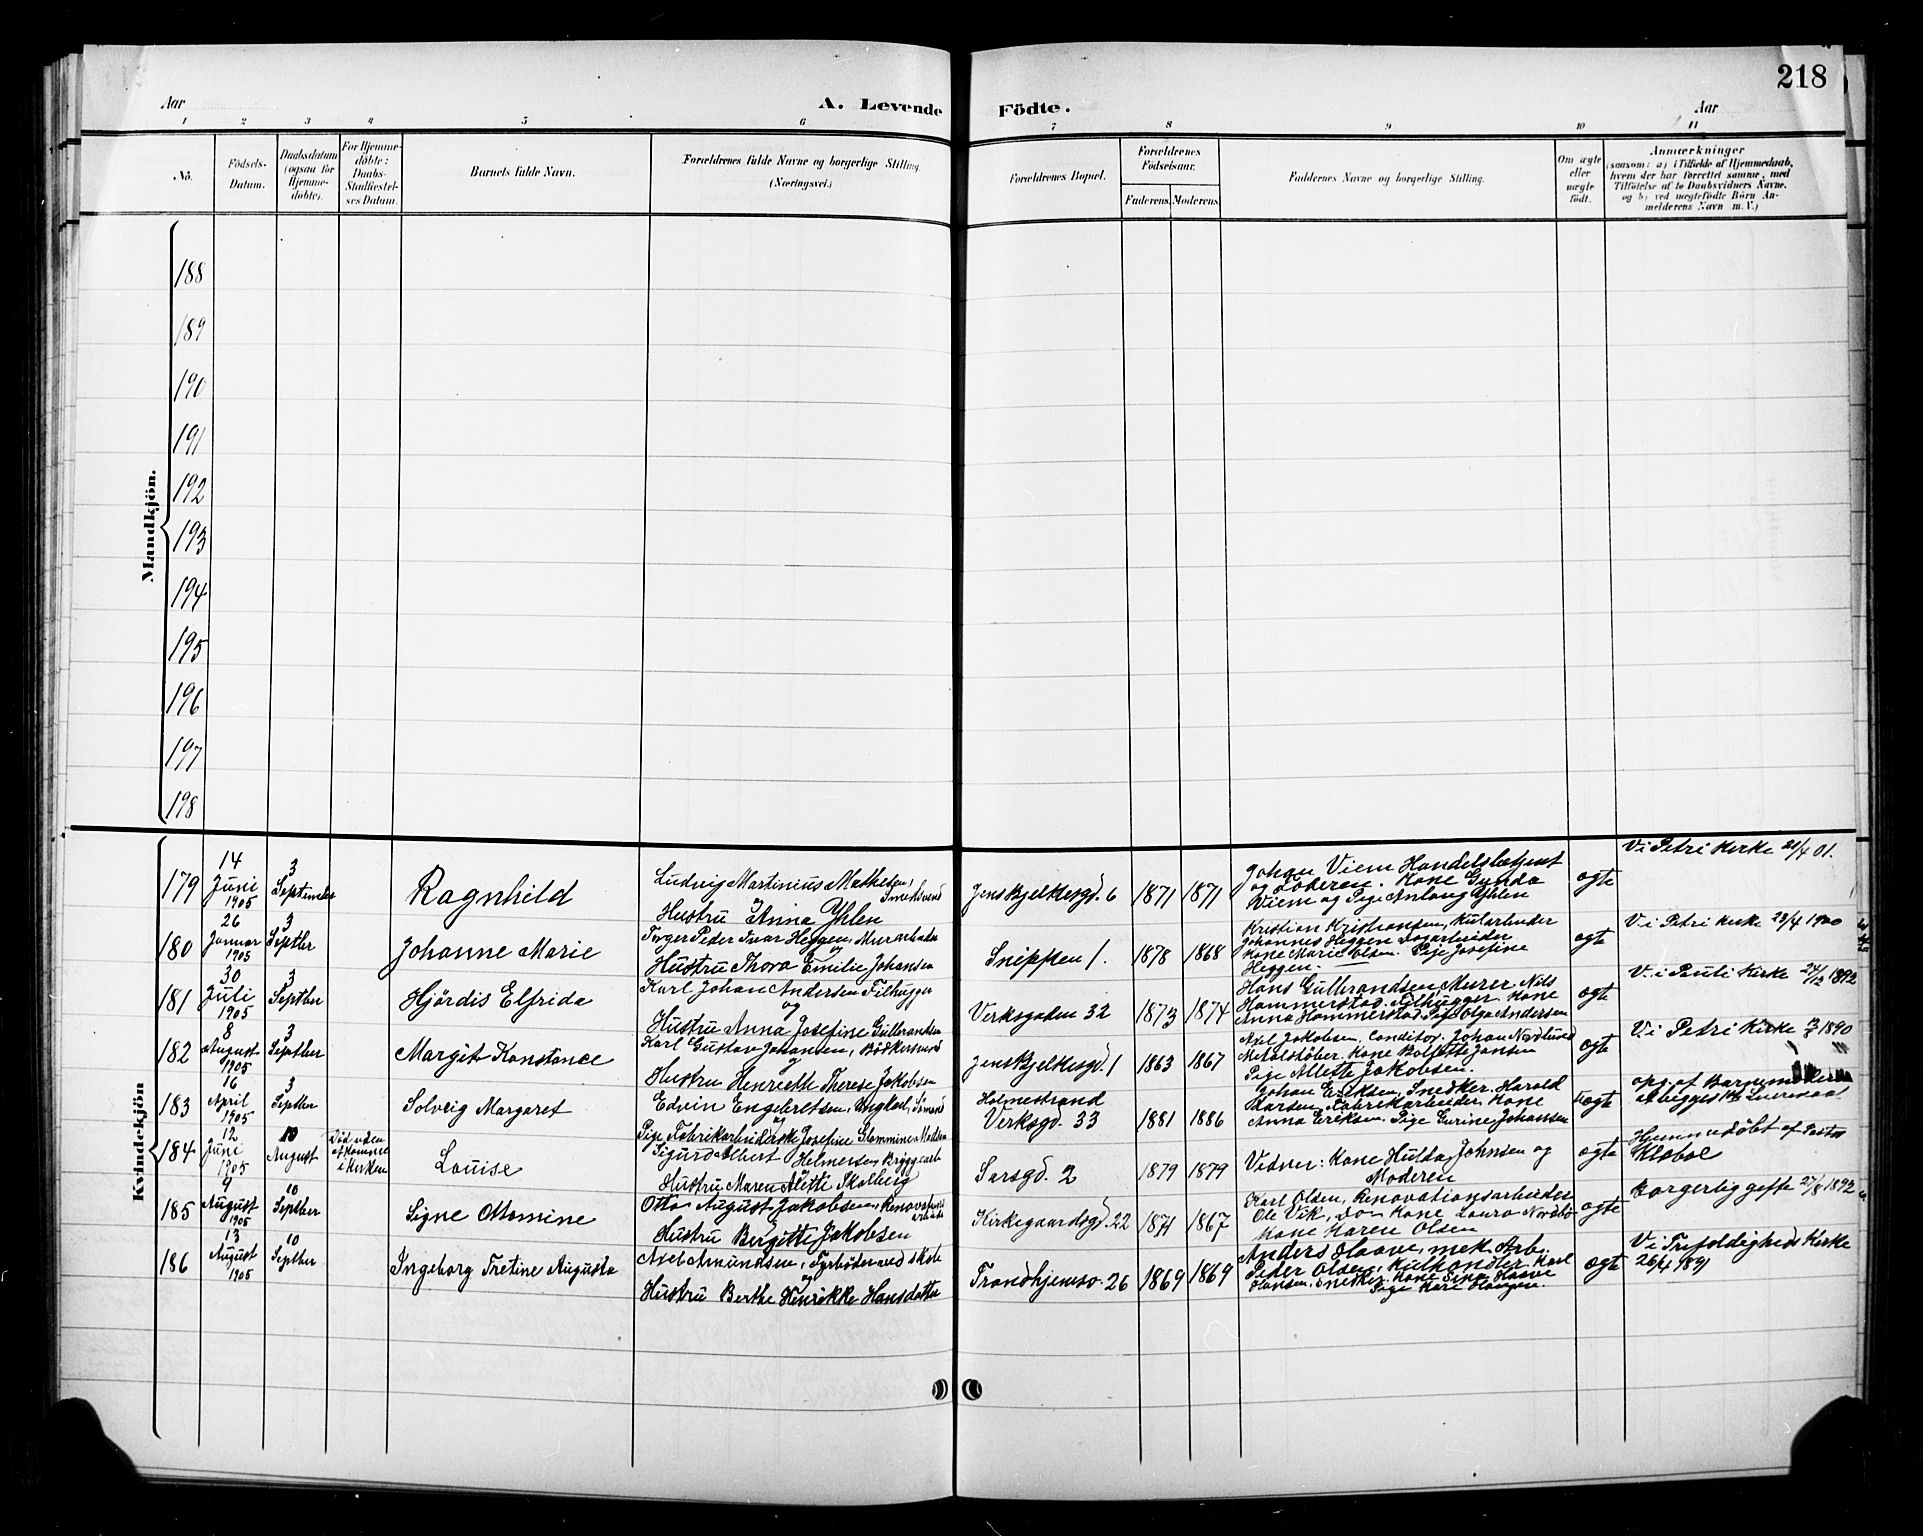 218
Aar
A. Levende
Födte.
Aar
1 2 3 4 5 6 7 8 9 10 11
No.
Födsels-
Datum.
Daabsdatum
(ogsaa for
Hjemme-
døbte).
For Hjemme-
døbte:
Daabs-
Stadfæstel-
ses Datum.
Barnets fulde Navn.
Forældrenes fulde Navne og borgerlige Stilling
(Næringsvei.)
Forældrenes Bopæl.
Forældrenes
Födselsaar.
Faderens. Moderens.
Faddernes Navne og borgerlige Stilling.
Om ægte
eller
uægte
født.
Anmærkninger
(saasom: a) i Tilfælde af Hjemmedaab,
hvem der har forrettet samme, med
Tilføielse af to Daabsvidners Navne.
og b) ved uægtefödte Börn An-
melderens Navn m. V.)
Mandkjön.
188
189
190
191
192
193
194
195
196
197
198
Kvindekjön
179
14
Juni
1905
3
September
Ragnhild
Ludvig Martinius Mathelsen,
Smedsvend
og
Hustru Anna Yhlen
Jens Bjelkesgd. 6
1871
1871
Johan Viem Handelsbetjent
og Faderen. Kone Gunda
Viem og Pige Anlaug Yhlen
ægte
V i Petri Kirke 21/4 01.
180
26
Januar
1905
3
Septber
Johanne Marie
Torger Peder Ivar Heggen, Murarbeider
og
Hustru Thora Emilie Johansen
Snippen 1.
1878
1868
Kristian Kristiansen, Kularbeider
Johannes Heggen
Kone Marie Olsen. Pige Josefine
Heggen.
ægte
V i Petri Kirke 22/4 1900
181
30
Juli
1905
3
Septber
Hjördis Elfrida
Karl Johan Andersen Filhugger
og
Hustru Anna Josefine Gulbrandsen
Verksgaden 32
1873
1874
Hans Gulbrandsen Murer Nils
Hammerstad. Filhugger. Kone
Anna Hammerstad. Pige Olga Andersen
ægte
V. i Pauli Kirke 24/12 1892
182
8
August
1905
3
Septber
Margit Konstance
Karl Gustav Johansen, Bödkersvend
og
Hustru Henriette Therese Jakobsen
Jens Bjelkesgd. 1
1863
1867
Axel Jakobsen, Conditor, Johan Nordlund
Metalstøber. Kone Bolette Jansen
Pige Allette Jakobsen.
ægte
V i Petri Kirke 1890
183
16
April
1905
3
Septber
Solveig Margaret
Edvin Engebretsen, Ungkarl, Sömand
og
Pige Fabrikarbeiderske Josefine Glommine Madsen
Holmestrand
Verksgd. 33
1881
1886
Johan Eriksen, Snedker. Harald
Larsen, Fabrikarbeider. Kone
Anna Eriksen. Pige Gurine Johansen
uægte
opg. af Barnemoderen
184
12
Juni
1905
10
August
Død uden
at komme
i Kirken
Louise
Sigurd Albert Helmersen Bryggearb
Hustru Maren Alette Skolberg
Sarsgd. 2
1879
1879
Vidner: Kone Hulda Johnsen og
Moderen
ægte
Hjemmedöbt af Pastor
Klaboe
185
4
August
1905
10
Septber
Signe Ottomine
Otto August Jakobsen, Renovations
arbeider
Hustru Bergitte Jakobsen
Kirkegaardsgd. 22
1871
1867
Karl Olsen, Renovationsarbeider
Ole Vik, Do Kone Laura Nordbö
Kone Karen Olsen
ægte
Borgerlig gifte 27/8 1892
186
13
August
1905
10
Septber
Ingeborg Tretine Augusta
Axel Amundsen, Fyrbøder ved skole
og
Hustru Berthe Henrikke Hansdatter
Trondhjemsv. 26
1869
1869
Anders Haave, mek. Arb.
Peder Olsen, Kulhandler, Karl
Hansen, Snedker. Kone Sina Haave
Pige Kari Haugen
ægte
V i Trefoldigheds Kirke
26/4 1891